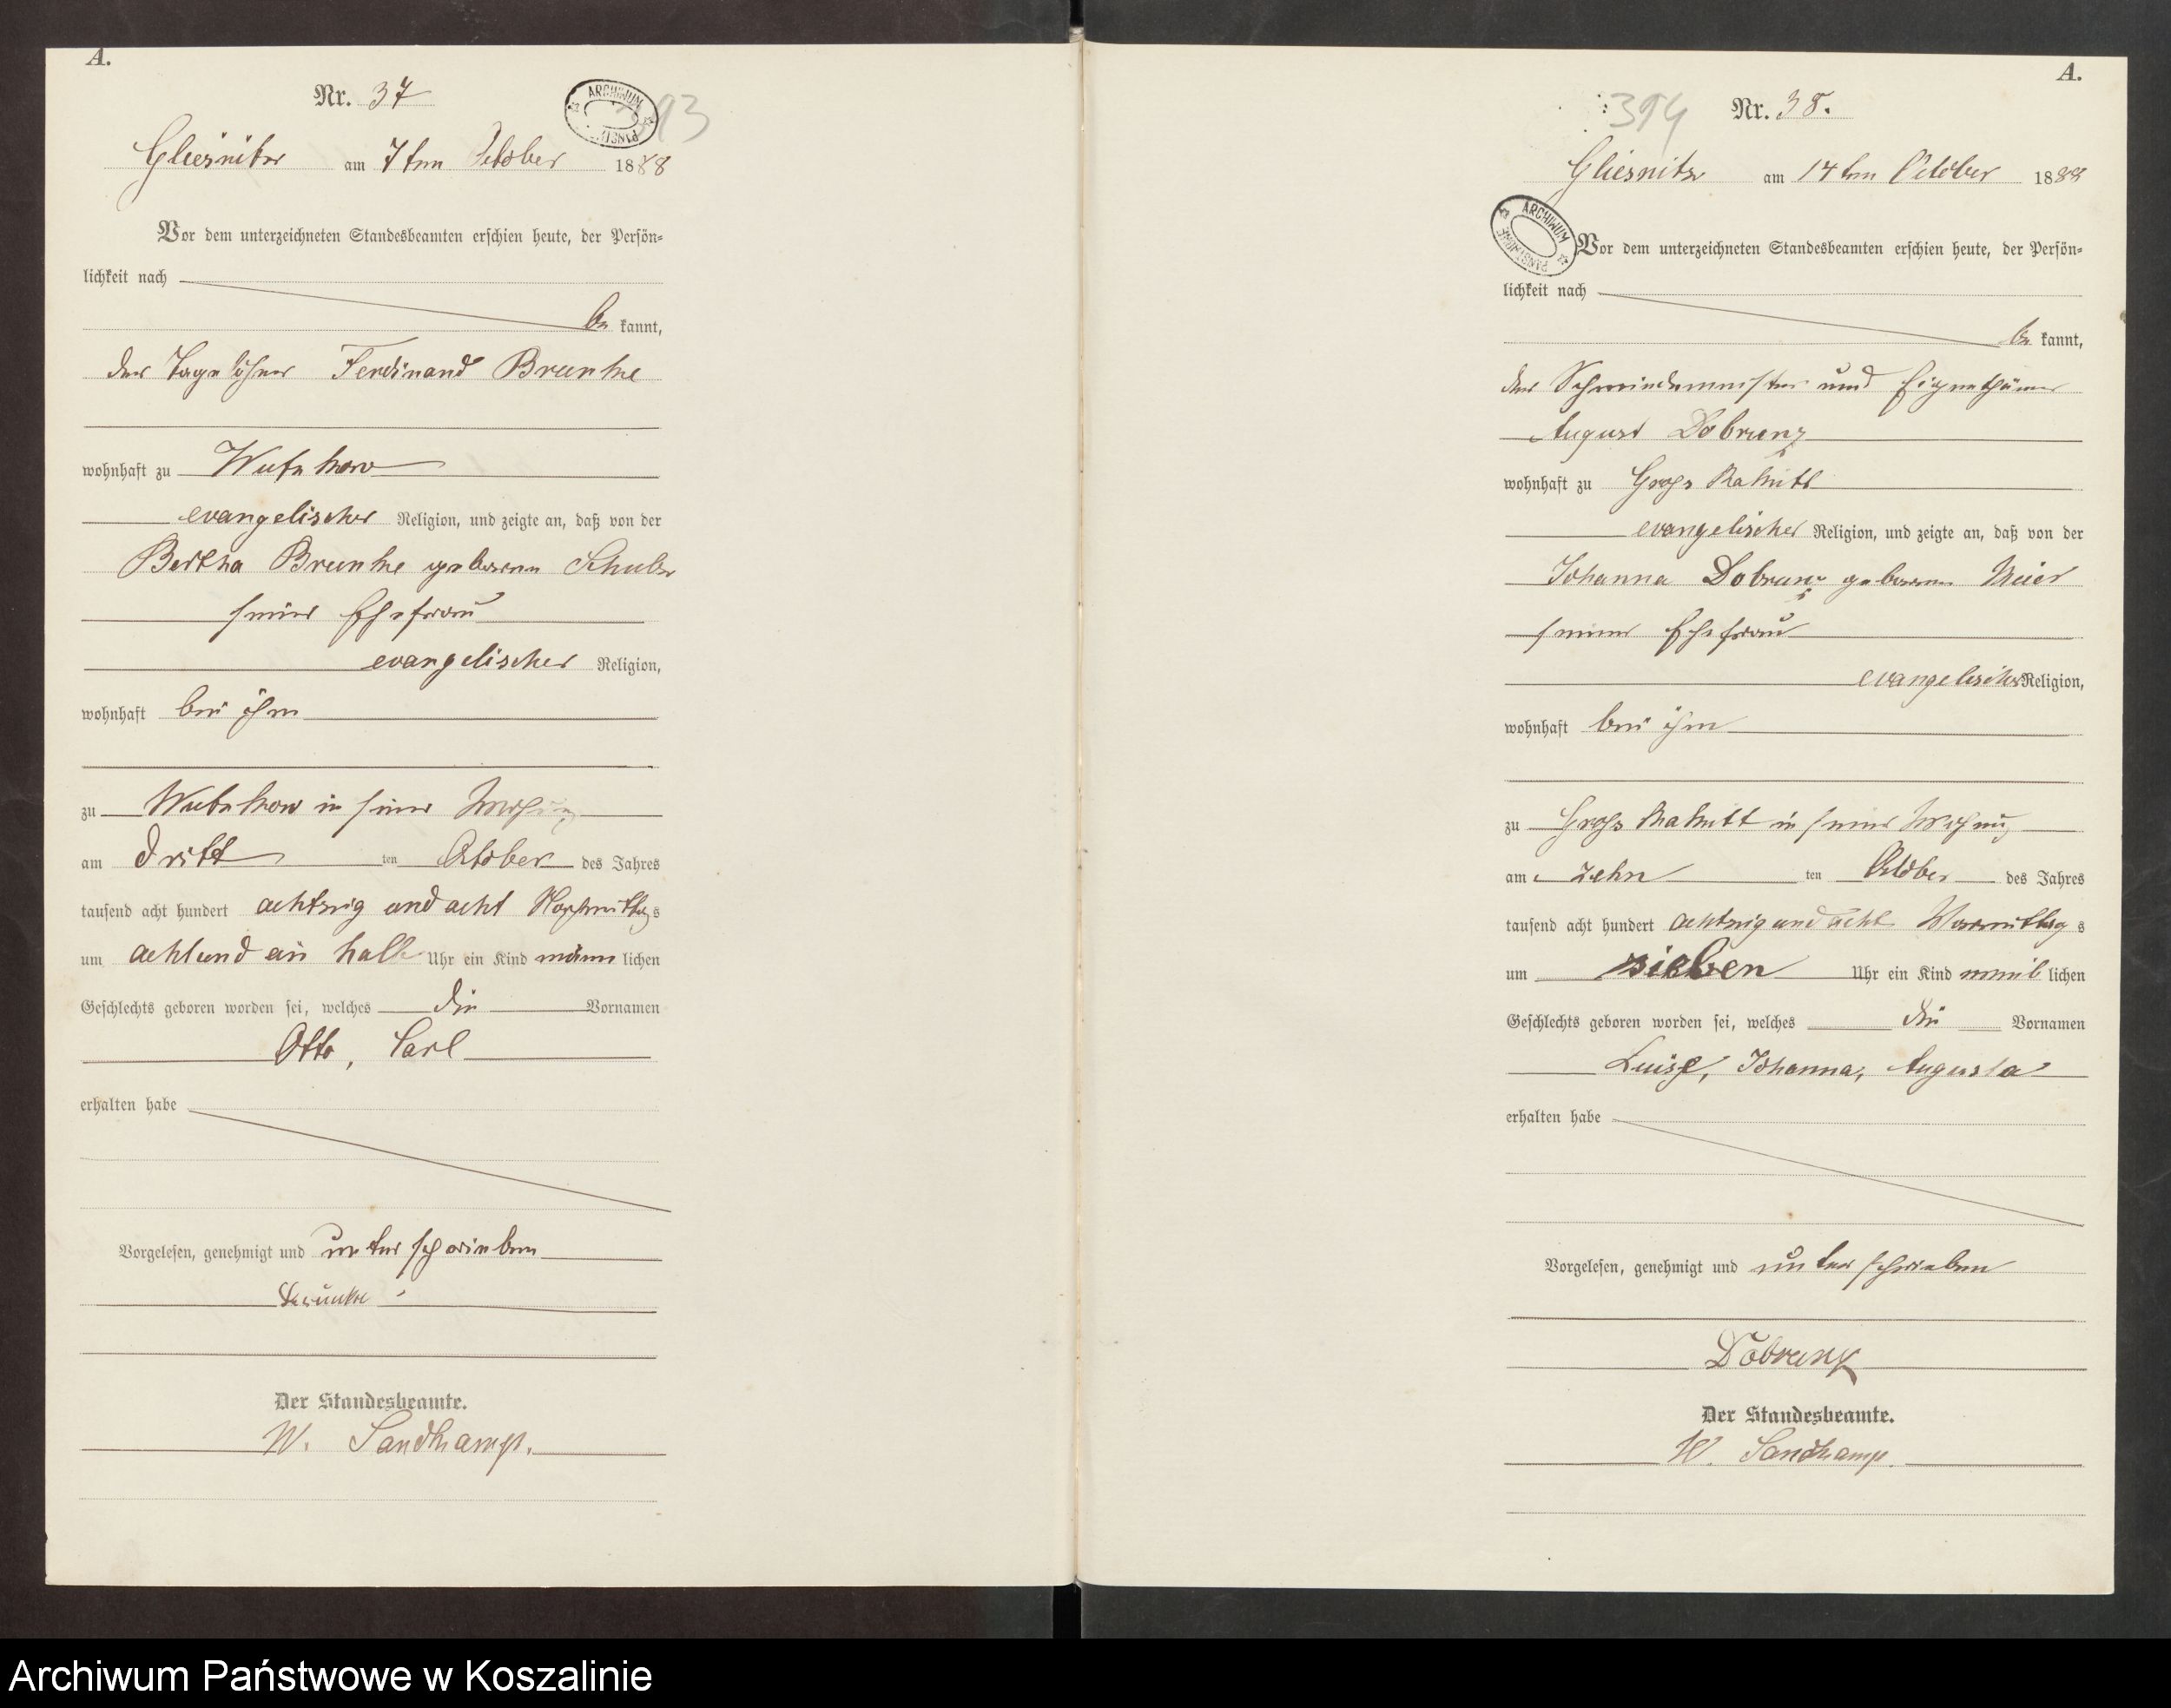 A.
Nr. 37
ARCHIWUM PAŃSTW
393
Gliesnitz am 7ten October 1888
Vor dem unterzeichneten Standesbeamten erschien heute, der Persön-
lichkeit nach
be kannt,
der Tagelöhner Ferdinand Brunke
wohnhaft zu Wutzkow
evangelischer Religion, und zeigte an, daß von der
Bertha Brunke geborene Schulz
seiner Ehefrau
evangelischer Religion,
wohnhaft bei ihm
zu in seiner Wohnung
am dritt ten October des Jahres
tausend acht hundert achtzig und acht Nachmittags
um acht und ein halb Uhr ein Kind männ lichen
Geschlechts geboren worden sei, welches die Vornamen
Otto, Carl
erhalten habe
Vorgelesen, genehmigt und unterschrieben
Brunke
Der Standesbeamte.
W. Sandkamp.
A.
394 Nr. 38.
Gliesnitz am 14ten October 1888
ARCHIWUM PAŃSTWOWE
Vor dem unterzeichneten Standesbeamten erschien heute, der Persön-
lichkeit nach
be kannt,
der Schmiedemeister und Eigenthümer
August Dobrunz
wohnhaft zu Gross Rakitt
evangelischer Religion, und zeigte an, daß von der
Johanna Dobrunz geborene Meier
seiner Ehefrau
evangelischer Religion,
wohnhaft bei ihm
zu Gross Rakitt in seiner Wohnung
am zehn ten October des Jahres
tausend acht hundert achtzig und acht Vormittag s
um sieben Uhr ein Kind weib lichen
Geschlechts geboren worden sei, welches die Vornamen
Luise, Johanna, Augusta
erhalten habe
Vorgelesen, genehmigt und unterschrieben
Dobrunz
Der Standesbeamte.
W. Sandkamp.
Archiwum Państwowe w Koszalinie